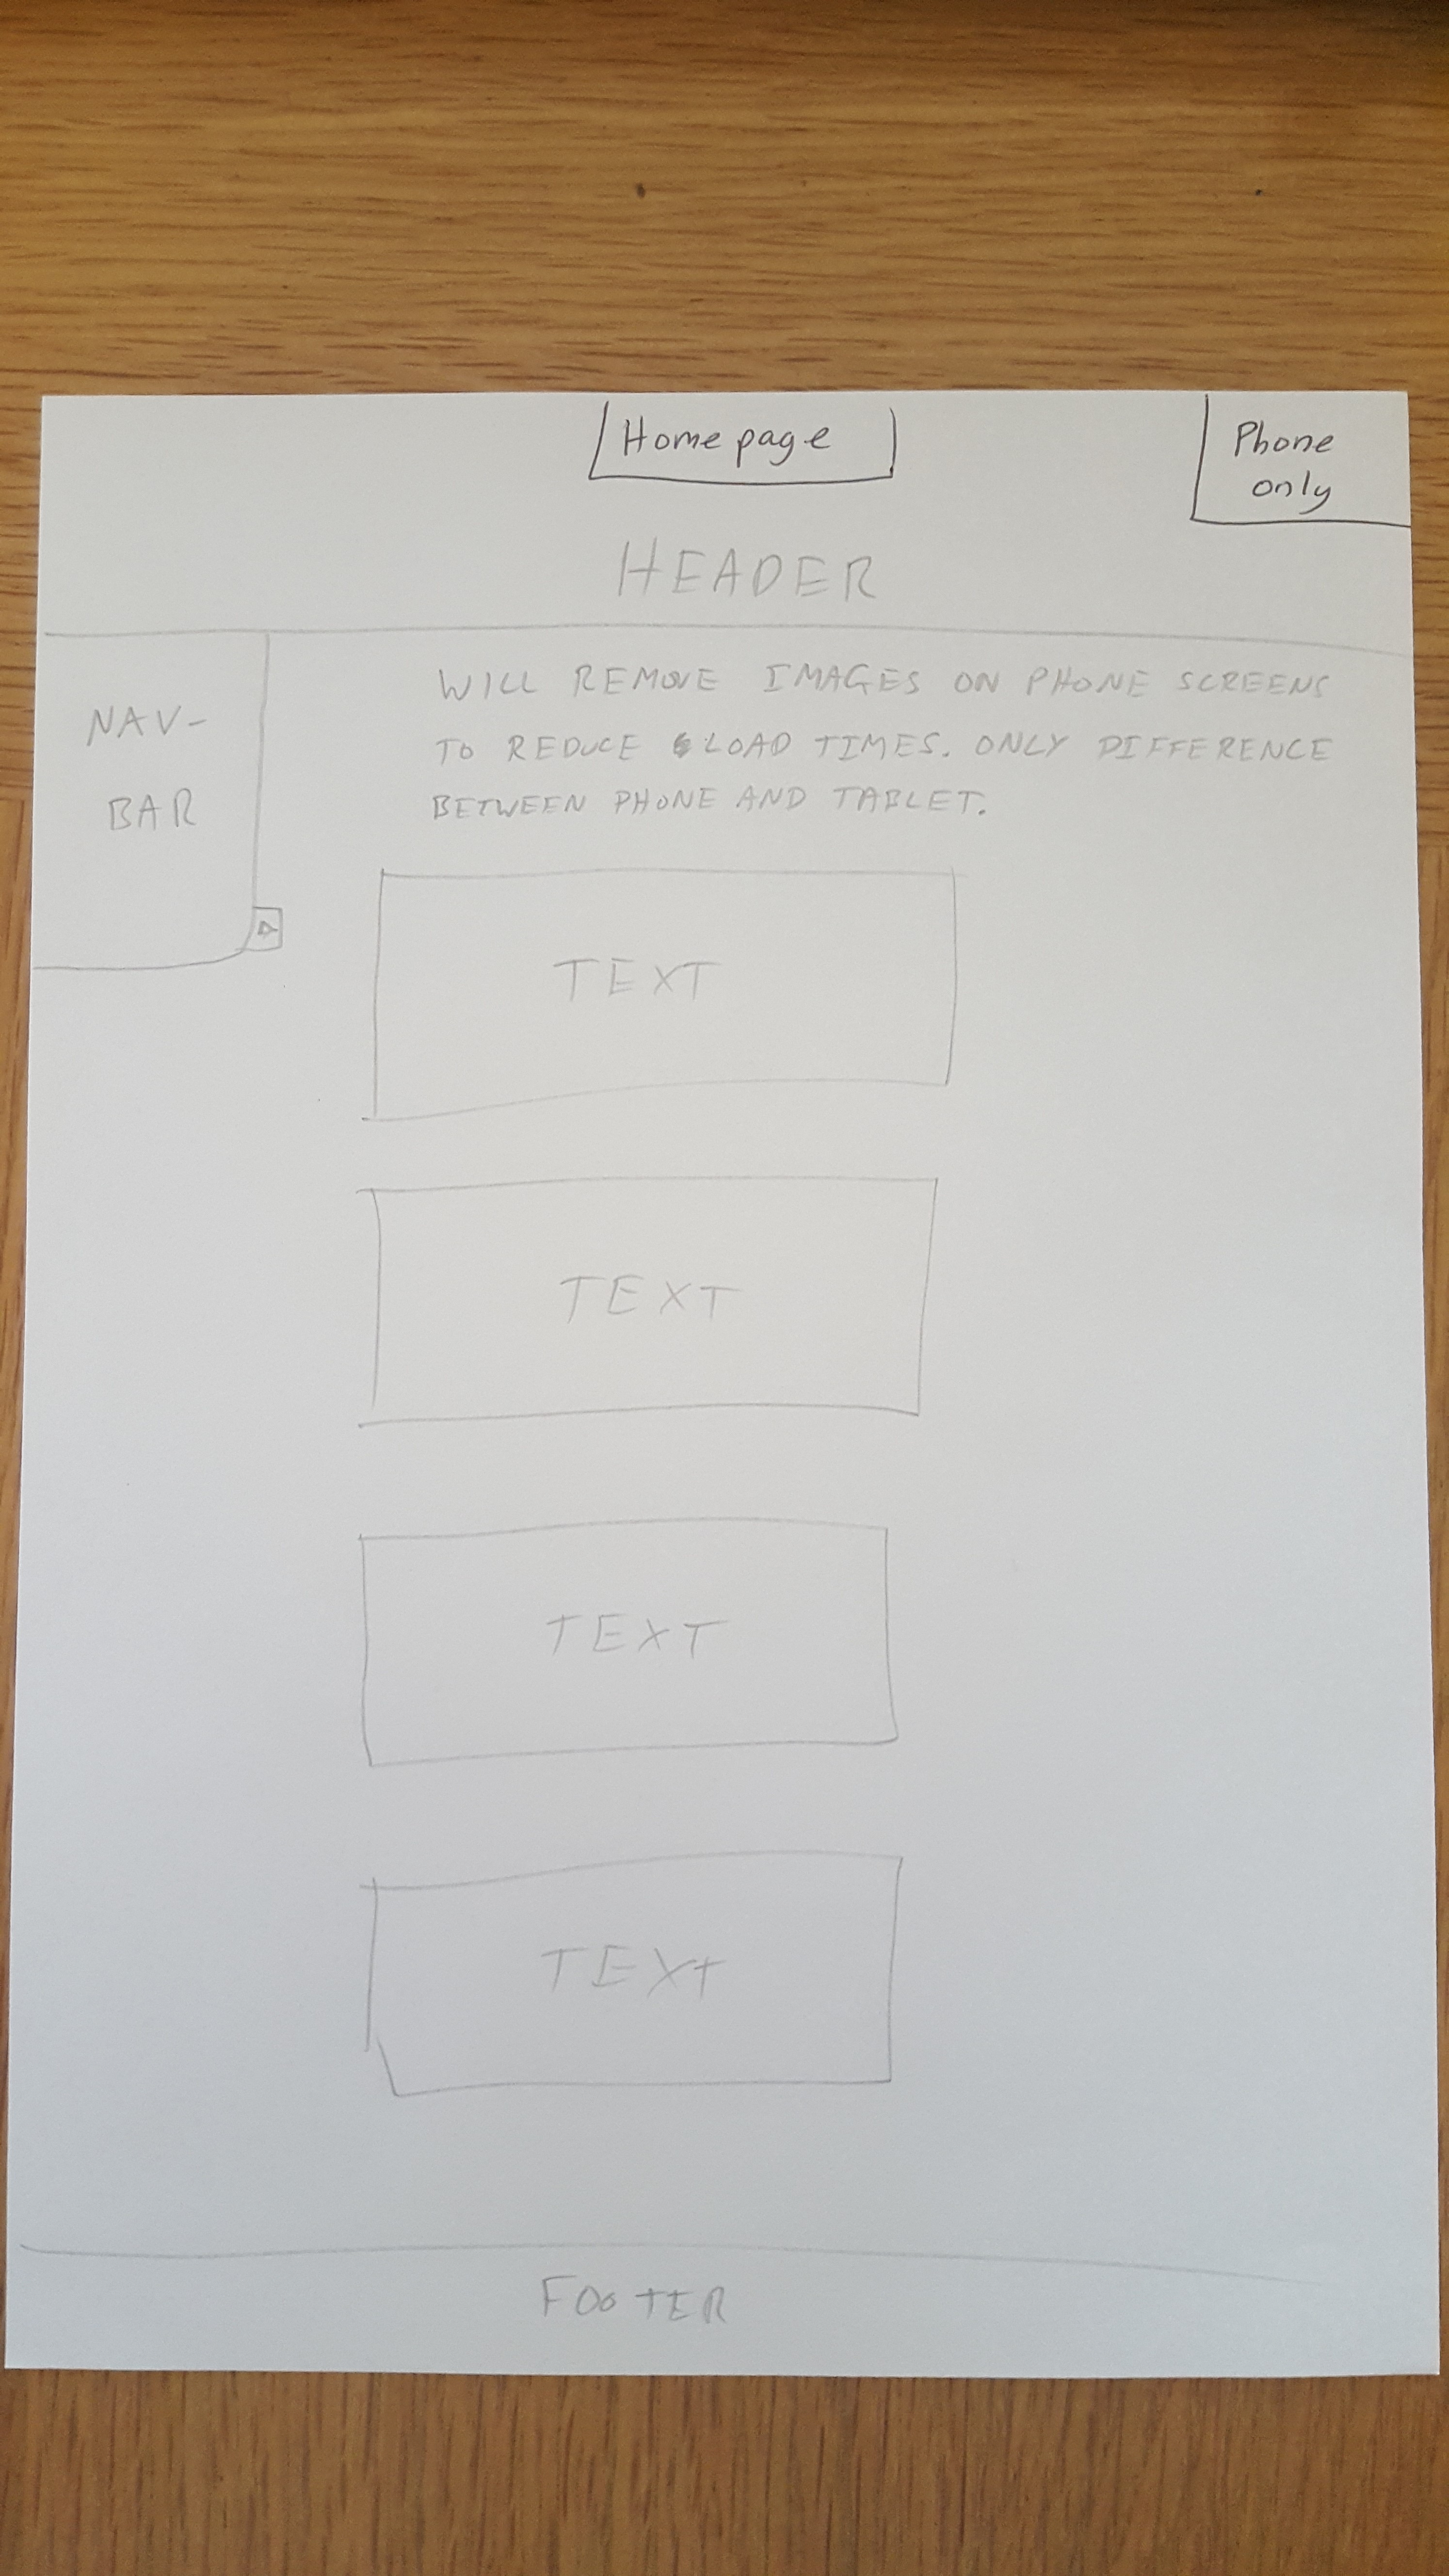 Home page
Phone
only
HEADER
NAV-
BAR
WILL REMOVE IMAGES ON PHONE SCREENS
TO REDUCE LOAD TIMES. ONLY DIFFERENCE
BETWEEN PHONE AND TABLET.
TEXT
TEXT
TEXT
TEXT
FOOTER